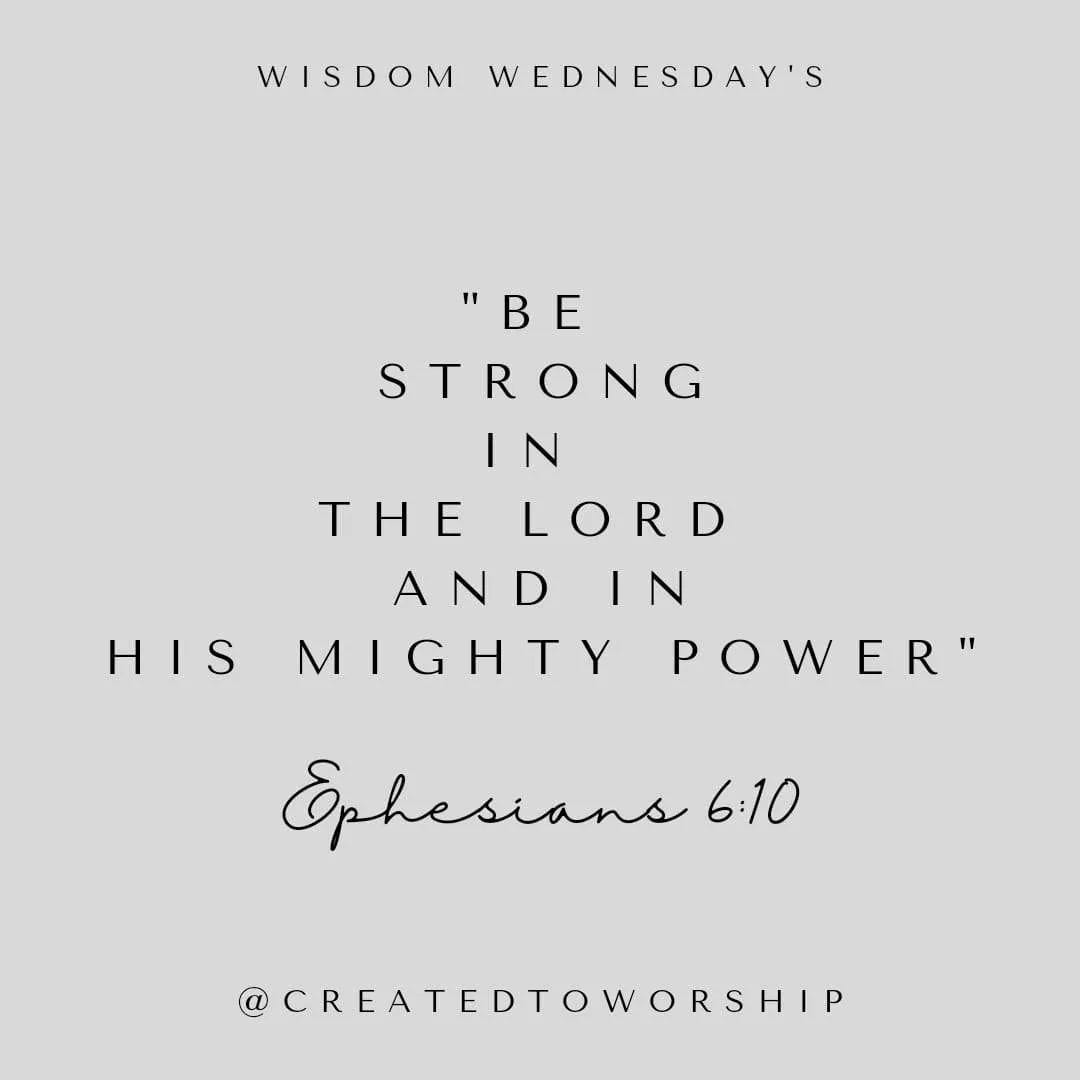 WISDOM WEDNESDAY'S
"BE
STRONG
IN
THE LORD
AND IN
HIS MIGHTY POWER"
Ephesians 6:10
@CREATEDTOWORSHIP